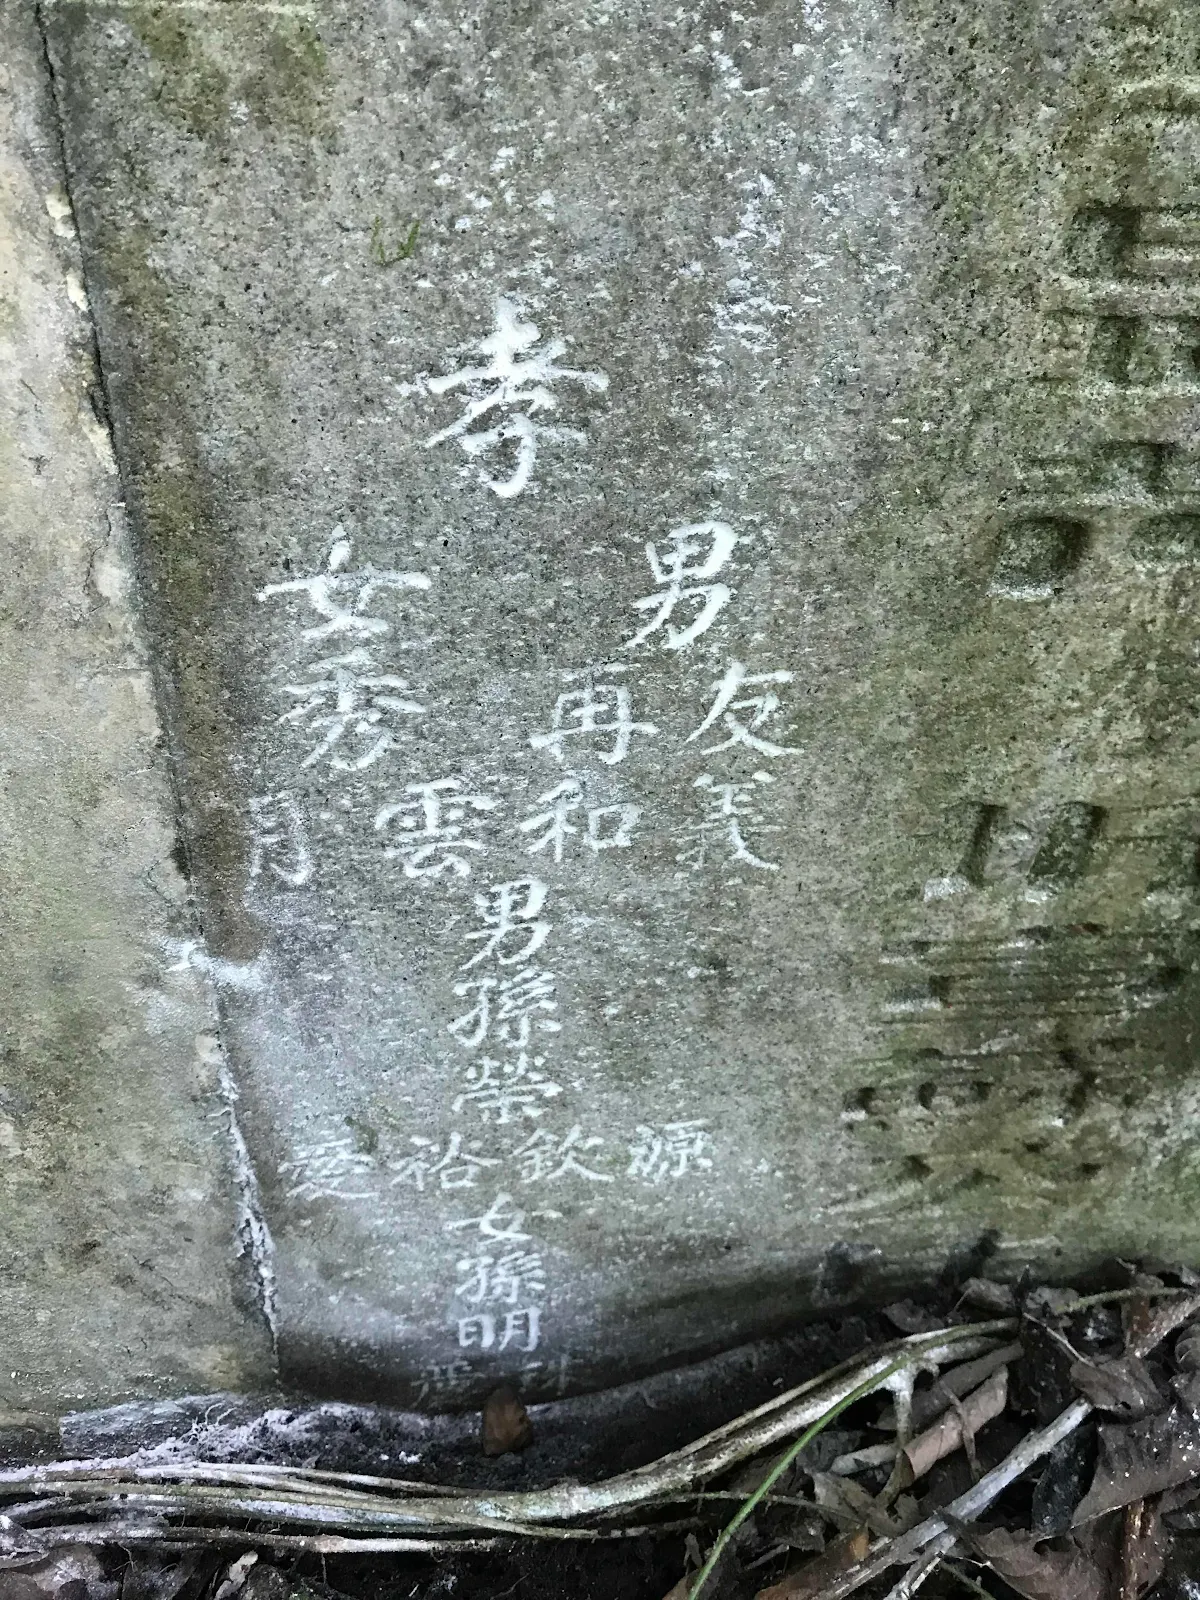 孝
男
友義
再和
女
秀
雲
月
男孫榮
源
欽
裕
愛
女孫明